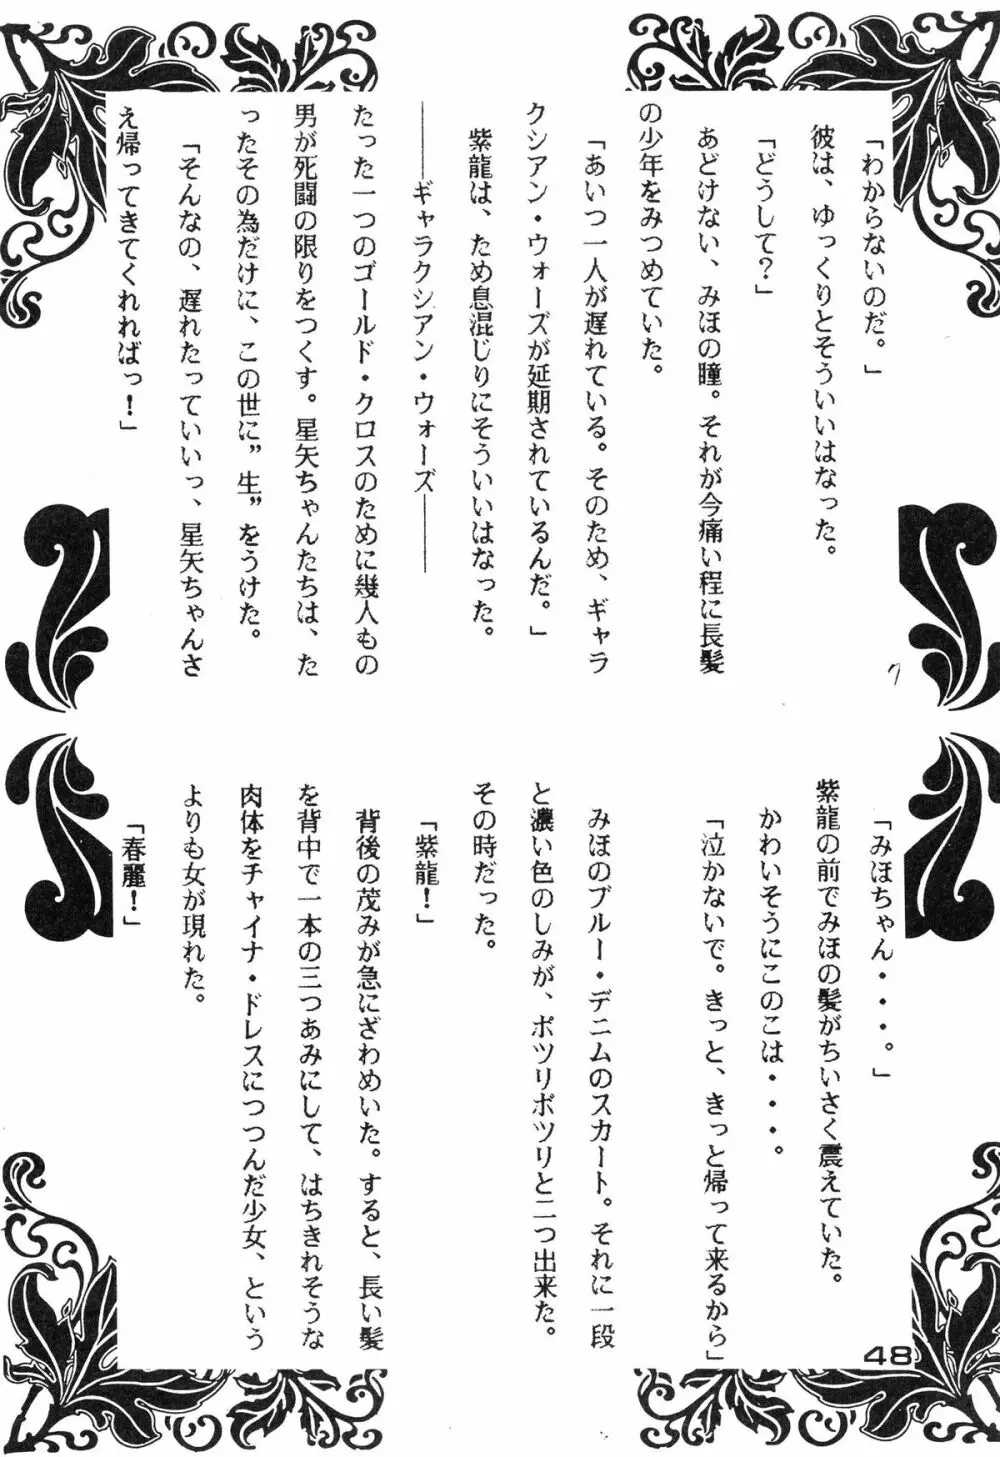 「わからないのだ。」
彼は、ゆっくりとそういいはなった。
「どうして?」
あどけない、みほの瞳。それが今痛い程に長髪
の少年をみつめていた。
「あいつ一人が遅れている。そのため、ギャラ
クシアン・ウォーズが延期されているんだ。」
紫龍は、ため息混じりにそういいはなった。
――ギャラクシアン・ウォーズ――
たった一つのゴールド・クロスのために幾人もの
男が死闘の限りをつくす。星矢ちゃんたちは、た
ったその為だけに、この世に”生”をうけた。
「そんなの、遅れたっていいっ、星矢ちゃんさ
え帰ってきてくれればっ!」
「みほちゃん・・・。」
紫龍の前でみほの髪がちいさく震えていた。
かわいそうにこのこは・・・。
「泣かないで。きっと、きっと帰って来るから」
みほのブルー・デニムのスカート。それに一段
と濃い色のしみが、ポツリポツリと二つ出来た。
その時だった。
「紫龍!」
背後の茂みが急にざわめいた。すると、長い髪
を背中で一本の三つあみにして、はちきれそうな
肉体をチャイナ・ドレスにつつんだ少女、という
よりも女が現れた。
「春麗!」
48